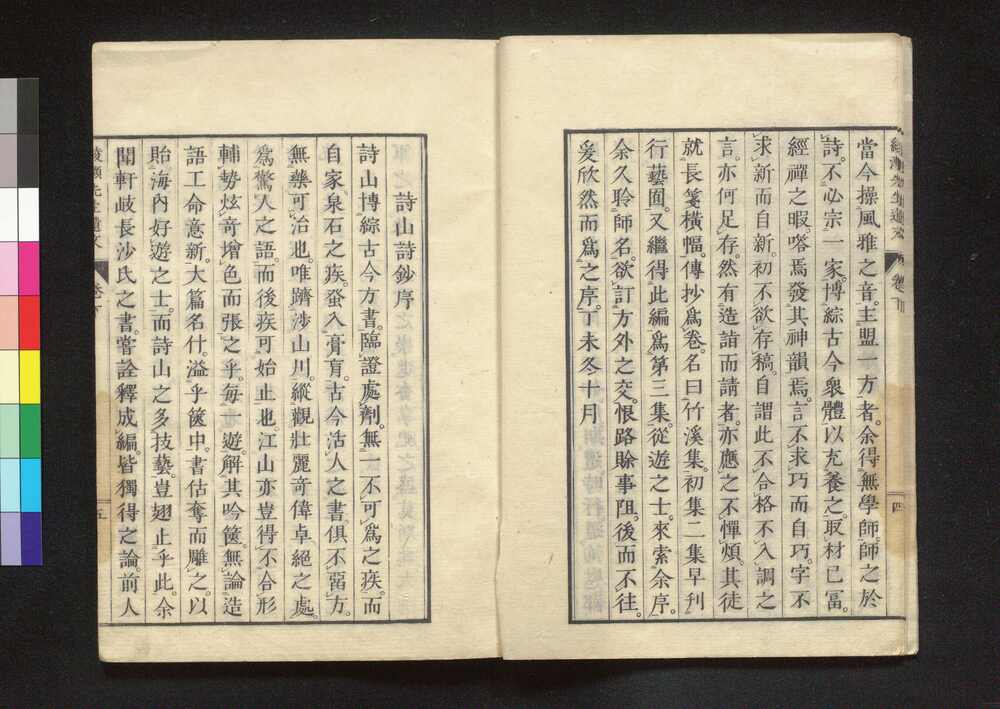 當今操風雅之音。主盟一方者。余得無學師。師之於
詩。不心宗一家。博綜古今衆體。以充養之。取材已富。
經禪之暇。嗒焉發其神韻焉。言不求巧而自巧。字不
求新而自新。初不欲存稿。自謂此不合格不入調之
言。亦何足存。然有造詣而請者。亦應之不憚煩。其徒
就長箋橫幅。傳抄爲卷。名曰竹溪集。初集二集早刊
行藝圃。又繼得此編。爲第三集。從遊之士。來索余序。
余久聆師名。欲訂方外之交。恨路賒事阻。後而不往。
爰欣然而爲之序。丁未冬十月
四
詩山詩鈔序
詩山博綜古今方書。臨證處劑。無一不可爲之疾。而
自家泉石之疾。蚤入膏肓。古今活人之書。俱不錮方。
無藥可治也。唯躋涉山川。縱觀壯麗奇偉卓絕之處。
爲驚人之語。而後疾可始止也。江山亦豈得不合形
輔勢。炫奇增色而張之乎。每一遊。解其吟篋。無論造
語工命意新。大篇名什。溢乎篋中。書估奪而雕之。以
貽海內好遊之士。而詩山之多技藝。豈翅止乎此。余
聞軒歧長沙氏之書。嘗詮釋成編。皆獨得之論。前人
先生遺文 卷下
五